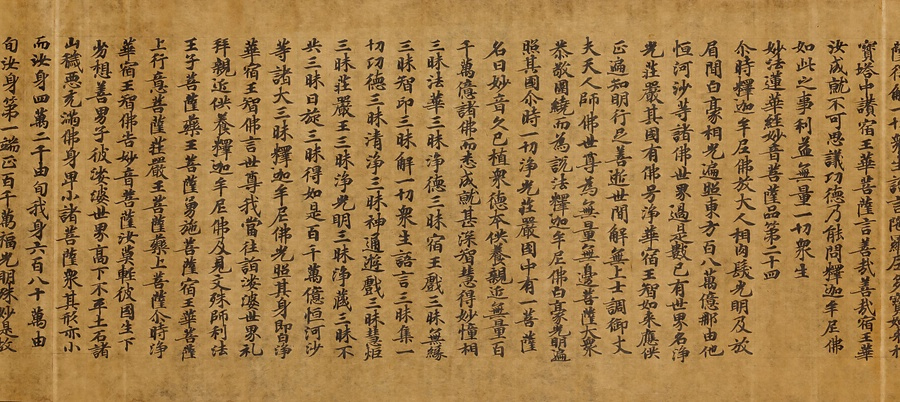 寶塔中讚宿王華菩薩言善哉善哉宿王華
汝成就不可思議功德乃能問釋迦牟尼佛
如此之事利益無量一切衆生
妙法蓮華經妙音菩薩品第二十四
尒時釋迦牟尼佛放大人相肉髻光明及放
眉間白豪相光遍照東方百八萬億那由他
恒河沙等諸佛世界過是數已有世界名淨
光莊嚴其國有佛号淨華宿王智如來應供
正遍知明行足善逝世間解無上士調御丈
夫天人師佛世尊為無量無邊菩薩大衆
恭敬圍繞而為說法釋迦牟尼佛白豪光明遍
照其國尒時一切淨光莊嚴國中有一菩薩
名曰妙音久已植衆德本供養親近無量百
千萬億諸佛而悉成就甚深智慧得妙幢相
三昧法華三昧淨德三昧宿王戲三昧無緣
三昧智印三昧解一切衆生語言三昧集一
切功德三昧清淨三昧神通遊戲三昧慧炬
三昧莊嚴王三昧淨光明三昧淨藏三昧不
共三昧日旋三昧得如是百千萬億恒河沙
等諸大三昧釋迦牟尼佛光照其身即白淨
華宿王智佛言世尊我當往詣娑婆世界礼
拜親近供養釋迦牟尼佛及見文殊師利法
王子菩薩藥王菩薩勇施菩薩宿王華菩薩
上行意菩薩莊嚴王菩薩藥上菩薩尒時淨
華宿王智佛告妙音菩薩汝莫輕彼國生下
劣想善男子彼娑婆世界高下不平土石諸
山穢惡充滿佛身卑小諸菩薩衆其形亦小
而汝身四萬二千由旬我身六百八十萬由
旬汝身第一端正百千萬福光明殊妙是故